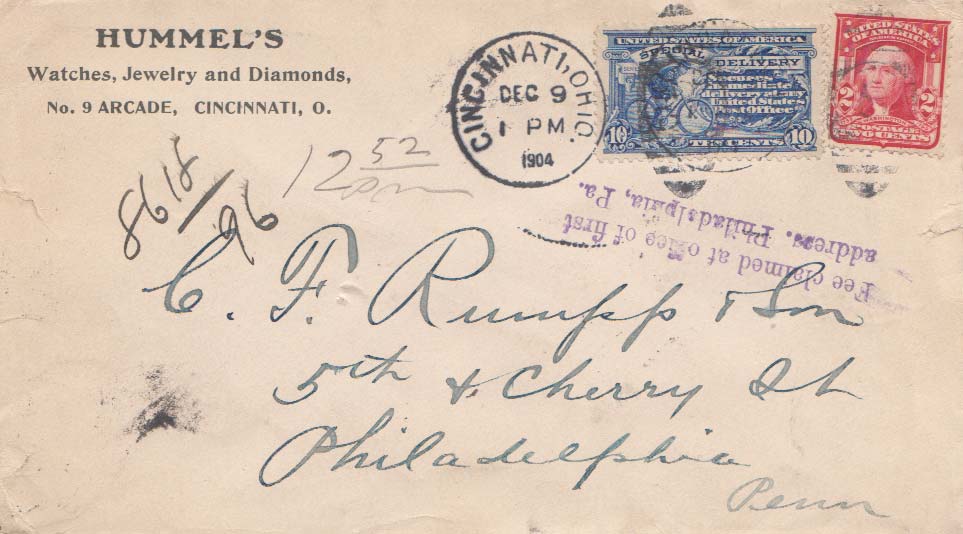 HUMMEL'S
Watches, Jewelry and Diamonds,
No. 9 ARCADE, CINCINNATI, O.
CINCINNATI, OHIO.
DEC 9
1 PM
1904
UNITED STATES OF AMERICA
SPECIAL DELIVERY
Secures
immediate
delivery at any
United States
Post Office
10 TEN CENTS 10
UNITED STATES
OF AMERICA
2 WASHINGTON 2
POSTAGE
TWO CENTS
8618/96
12 52
Fee claimed at office of first
address. Philadelphia, Pa.
C. F. Rumpp & Son
5th & Cherry St
Philadelphia
Penn